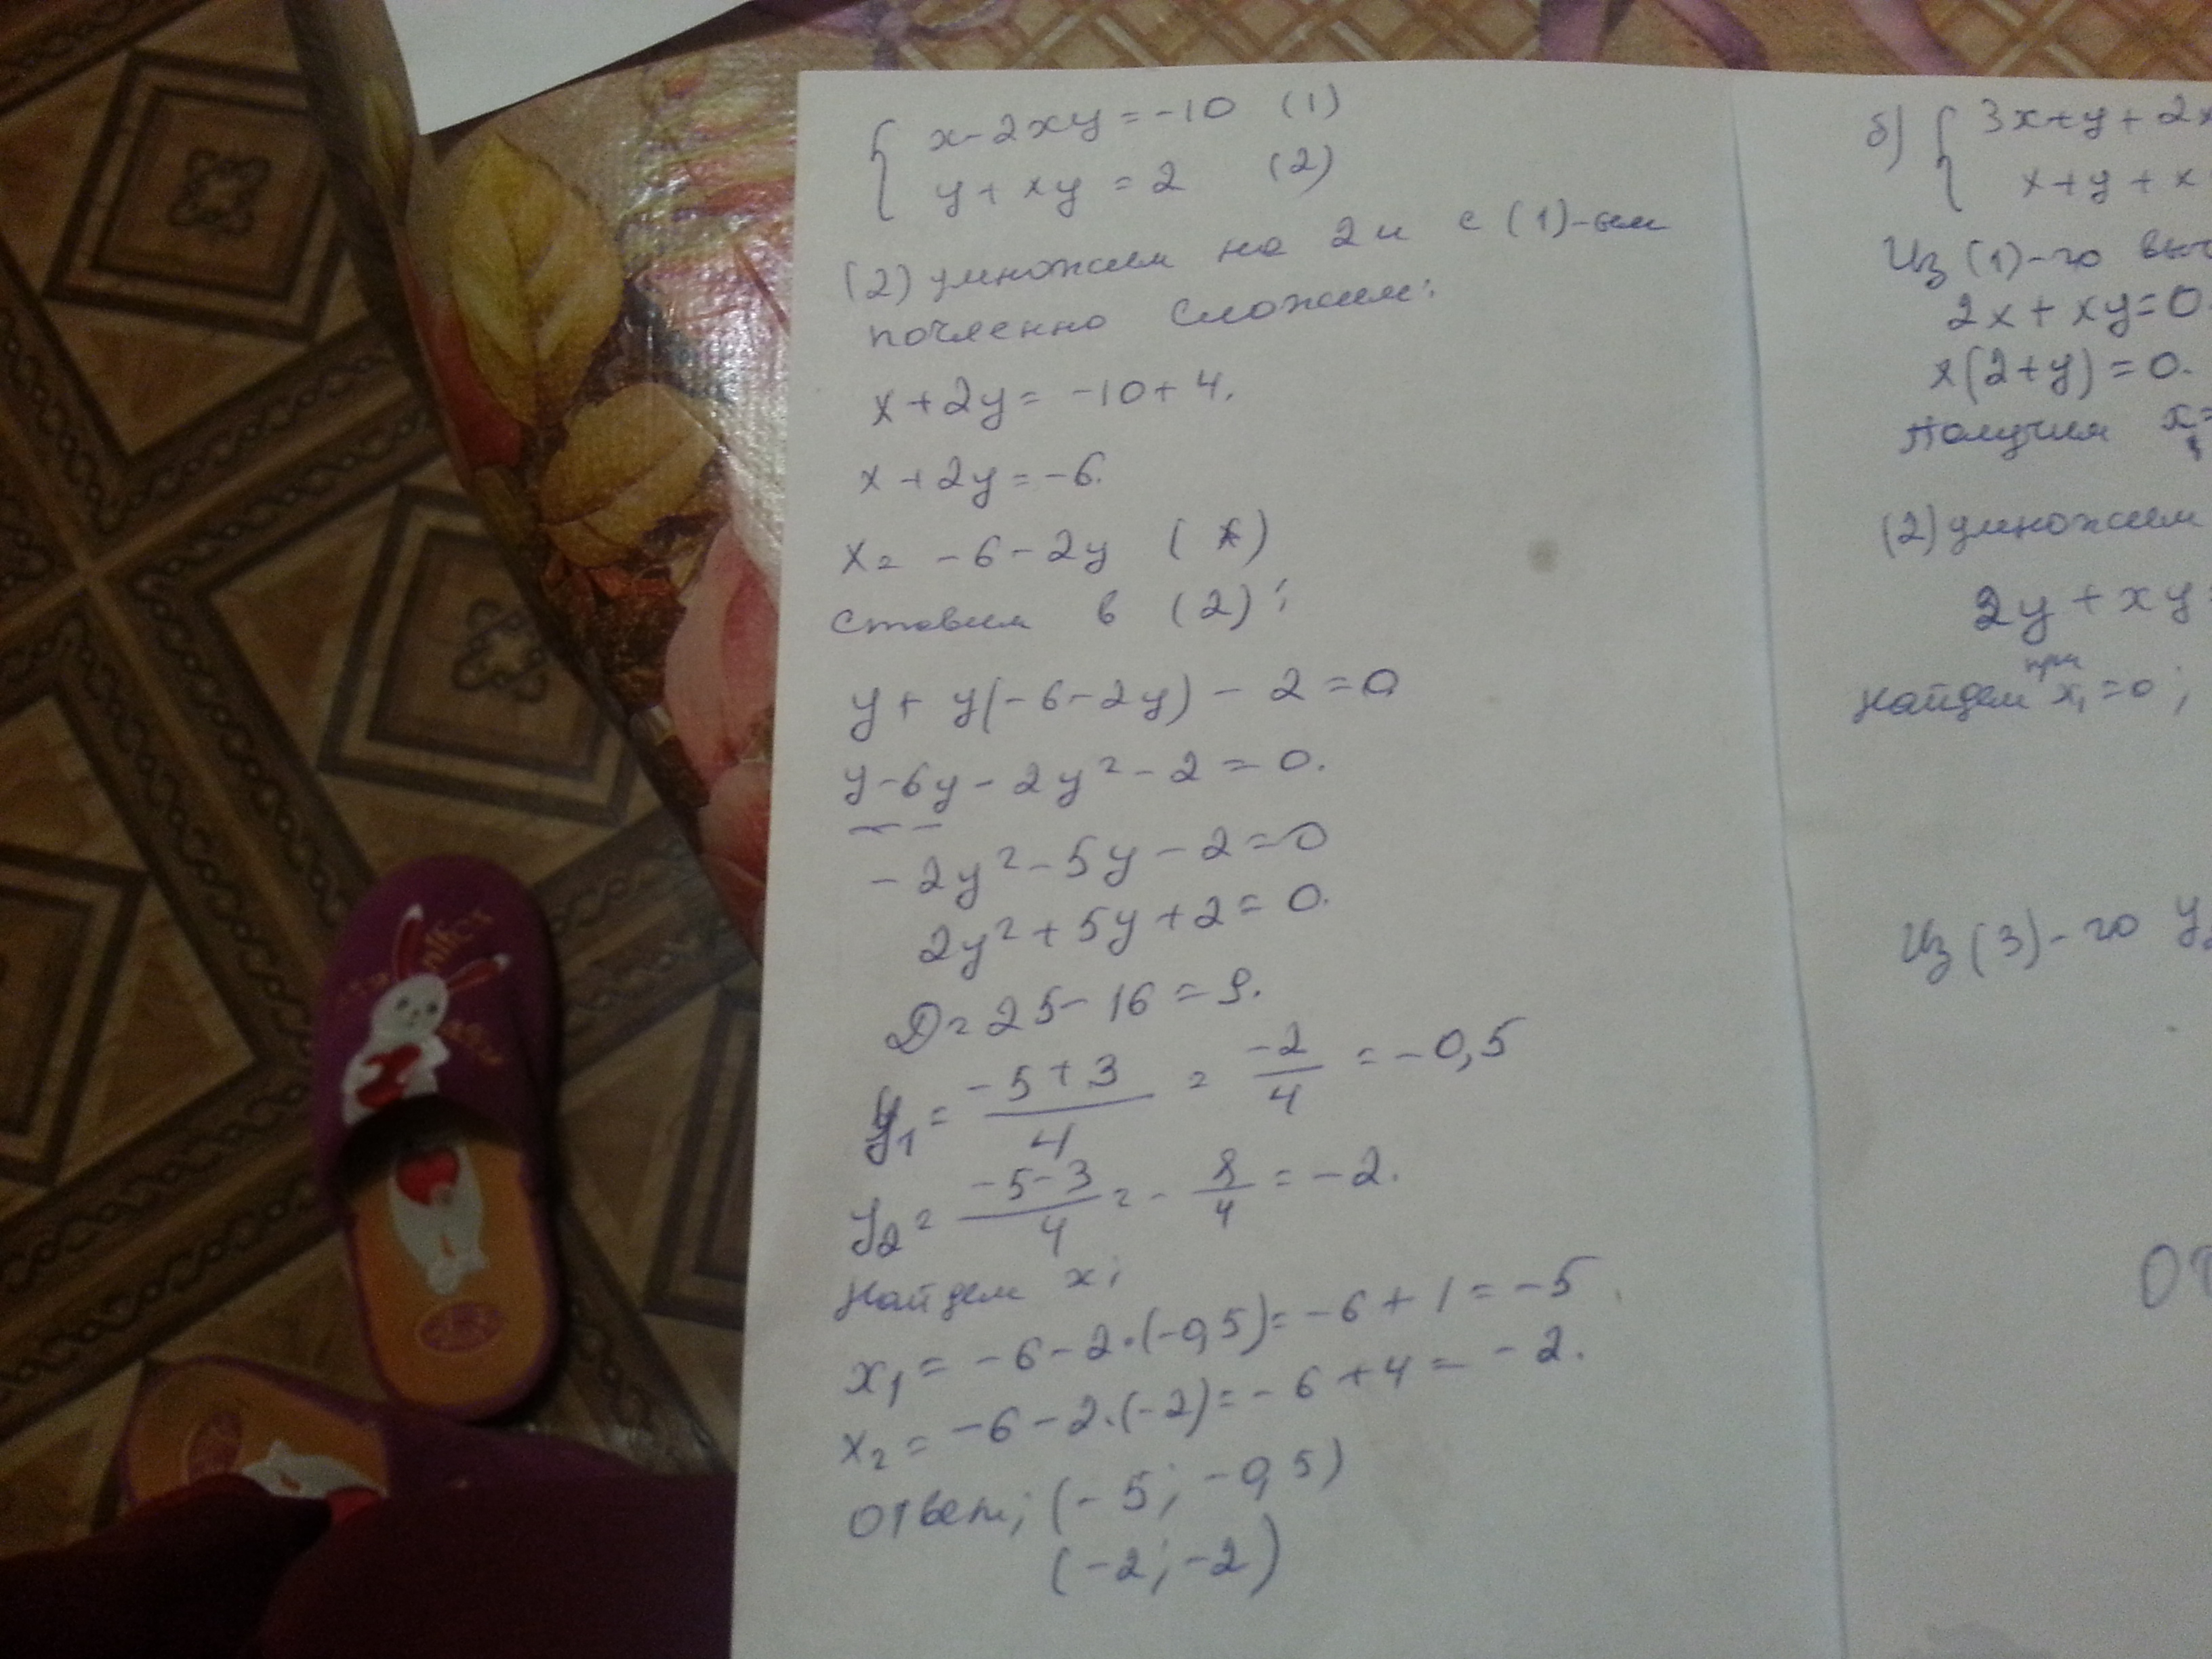 x-2xy=-10 (1)
y+xy=2 (2)
(2) умножим на 2 и с (1)-ым
почленно сложим:
x+2y=-10+4.
x+2y=-6.
x=-6-2y (*)
ставим в (2):
y+y(-6-2y)-2=0
y-6y-2y²-2=0.
-2y²-5y-2=0
2y²+5y+2=0.
D=25-16=9.
y₁=(-5+3)/4=-2/4=-0,5
y₂=(-5-3)/4=-8/4=-2.
найдем x;
x₁=-6-2·(-0,5)=-6+1=-5.
x₂=-6-2·(-2)=-6+4=-2.
ответ; (-5;-0,5)
(-2;-2)
б) 3x+y+2x
x+y+x
Из (1)-го выч
2x+xy=0.
x(2+y)=0.
Получим x=
(2) умножим
2y+xy=
найдем при x₁=0;
Из (3)-го y₂
От